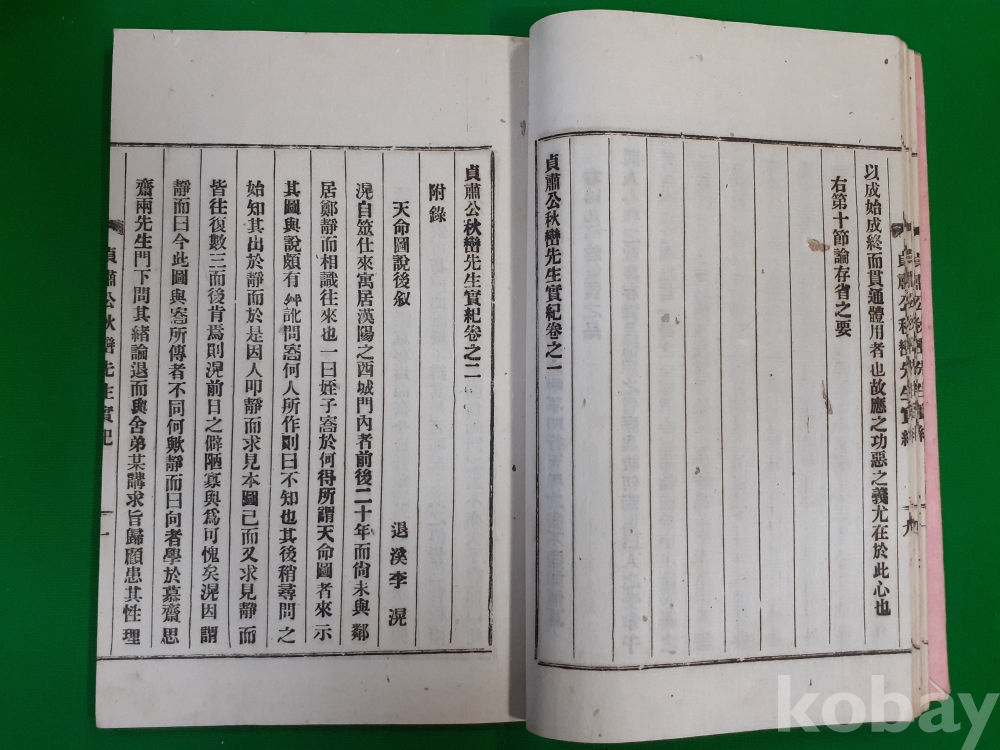 以成始成終而貫通體用者也故應之功惡之義尤在於此心也
右第十節論存省之要
貞肅公秋巒先生實紀卷之一
貞肅公秋巒先生實紀卷之二
附錄
天命圖說後叙
退溪李滉
滉自筮仕來寓居漢陽之西城門內者前後二十年而尙未與鄰
居鄭靜而相識往來也一日姪子㝯於何得所謂天命圖者來示
其圖與說頗有舛訛問㝯何人所作則曰不知也其後稍尋問之
始知其出於靜而於是因人叩靜而求見本圖已而又求見靜而
皆往復數三而後肯焉則滉前日之僻陋寡與爲可愧矣滉因謂
靜而曰今此圖與㝯所傳者不同何歟靜而曰向者學於慕齋思
齋兩先生門下問其緖論退而與舍弟某講求旨歸顧患其性理
貞肅公秋巒先生實紀
一
kobay